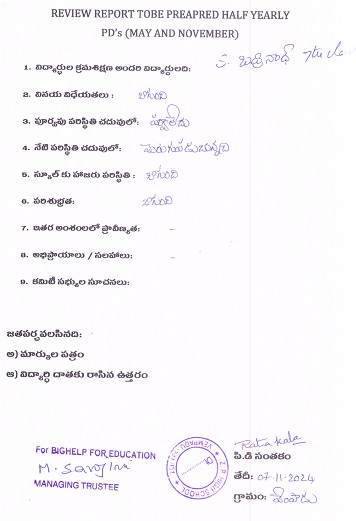 REVIEW REPORT TOBE PREAPRED HALF YEARLY
PD's (MAY AND NOVEMBER)
S. బద్రినాథ్ 7th
1. విద్యార్థుల క్రమశిక్షణ అందరి విద్యార్థులది:
2. వినయ విధేయతలు : బాగుంది
3. పూర్వపు పరిస్థితి చదువులో: పర్వాలేదు
4. నేటి పరిస్థితి చదువులో: మెరుగుపడుతున్నది
5. స్కూల్ కు హాజరు పరిస్థితి : బాగుంది
6. పరిశుభ్రత: బాగుంది
7. ఇతర అంశంలలో ప్రావీణ్యత: -
8. అభిప్రాయాలు / సలహాలు: -
9. కమిటీ సభ్యుల సూచనలు:
జతపర్చవలసినది:
అ) మార్కుల పత్రం
ఆ) విద్యార్థి దాతకు రాసిన ఉత్తరం
For BIGHELP FOR EDUCATION
M. Sarojini
MANAGING TRUSTEE
Z.P. HIGH SCHOOL
VEMPADU
Ratakala
పి.డి సంతకం
తేదీ: 07-11-2024
గ్రామం: వేంపాడు